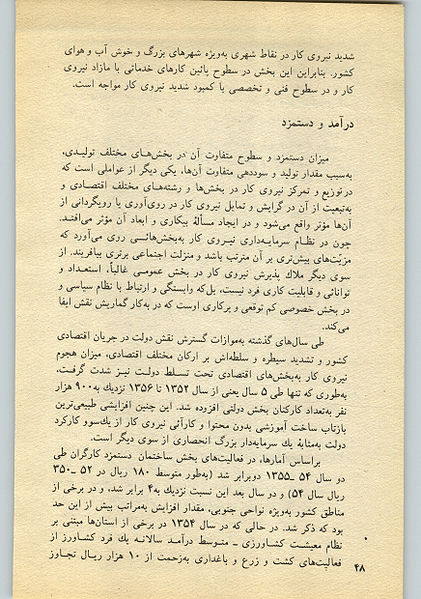 شدید نیروی کار در نقاط شهری به‌ویژه شهرهای بزرگ و خوش آب و هوای
کشور. بنابراین این بخش در سطوح پائین کارهای خدماتی با مازاد نیروی
کار و در سطوح فنی و تخصصی با کمبود شدید نیروی کار مواجه است.
درآمد و دستمزد
میزان دستمزد و سطوح متفاوت آن در بخش‌های مختلف تولیدی،
به‌سبب مقدار تولید و سوددهی متفاوت آن‌ها، یکی دیگر از عواملی است که
در توزیع و تمرکز نیروی کار در بخش‌ها و رشته‌های مختلف اقتصادی و
به‌تبعیت از آن در گرایش و تمایل نیروی کار در روی‌آوری یا رویگردانی از
آن‌ها مؤثر واقع می‌شود و در ایجاد مسألهٔ بیکاری و ابعاد آن مؤثر می‌افتد.
چون در نظام سرمایه‌داری نیروی کار به‌بخش‌هائی روی می‌آورد که
مزیّت‌های بیش‌تری بر آن مترتب باشد و منزلت اجتماعی برتری بیافریند. از
سوی دیگر ملاك پذیرش نیروی کار در بخش عمومی غالباً، استعداد و
توانائی و قابلیت کاری فرد نیست، بل‌که وابستگی و ارتباط با نظام سیاسی و
در بخش خصوصی کم توقعی و پرکاری اوست که در به‌کار گماریش نقش ایفا
می‌کند.
طی سال‌های گذشته به‌موازات گسترش نقش دولت در جریان اقتصادی
کشور و تشدید سیطره و سلطه‌اش بر ارکان مختلف اقتصادی، میزان هجوم
نیروی کار به‌بخش‌های اقتصادی تحت تسلط دولت نیز شدت گرفت،
به‌طوری که تنها طی ۵ سال یعنی از سال ۱۳۵۲ تا ۱۳۵۶ نزدیك به ۹۰۰ هزار
نفر به‌تعداد کارکنان بخش دولتی افزوده شد. این چنین افزایشی طبیعی‌ترین
بازتاب ساخت آموزشی بدون محتوا و کارآئی نیروی کار از یك‌سو کارکرد
دولت به‌مثابهٔ یك سرمایه‌دار بزرگ انحصاری از سوی دیگر است.
براساس آمارها، در فعالیت‌های بخش ساختمان دستمزد کارگران طی
دو سال ۵۴ ـ ۱۳۵۵ دوبرابر شد (به‌طور متوسط ۱۸۰ ریال در ۵۲ ـ ۳۵۰
ریال سال ۵۴) و دو سال بعد این نسبت نزدیك به ۴ برابر شد، و در برخی از
مناطق کشور به‌ویژه نواحی جنوبی، مقدار افزایش به‌مراتب بیش از این حد
بود که ذکر شد. در حالی که در سال ۱۳۵۴ در برخی از استان‌ها مبتنی بر
نظام معیشت کشاورزی ـ متوسط درآمد سالانه یك فرد کشاورز از
فعالیت‌های کشت و زرع و باغداری به‌زحمت از ۱۰ هزار ریال تجاوز
۴۸